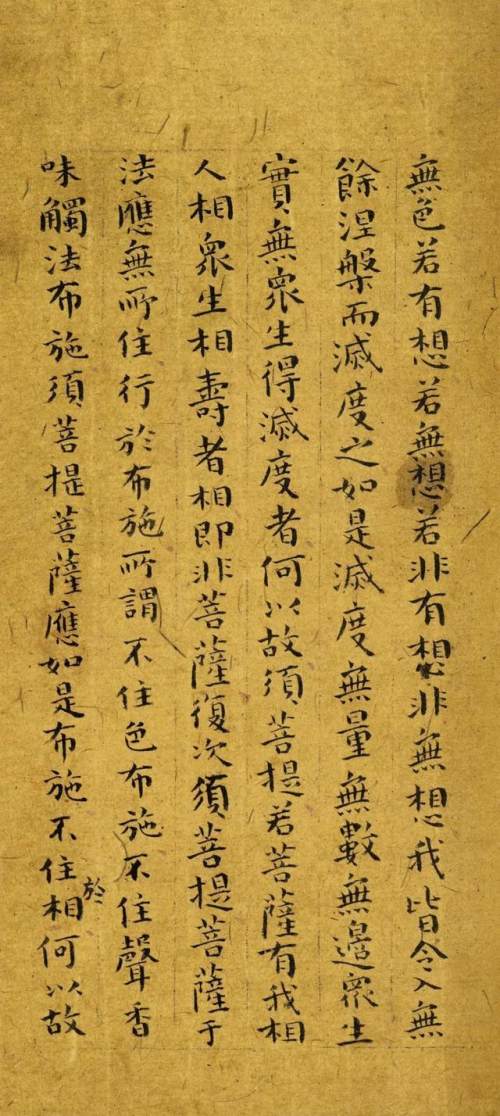 無色若有想若無想若非有想非無想我皆令入無
餘涅槃而滅度之如是滅度無量無數無邊眾生
實無眾生得滅度者何以故須菩提若菩薩有我相
人相眾生相壽者相即非菩薩復次須菩提菩薩于
法應無所住行於布施所謂不住色布施不住聲香
味觸法布施須菩提菩薩應如是布施不住於相何以故